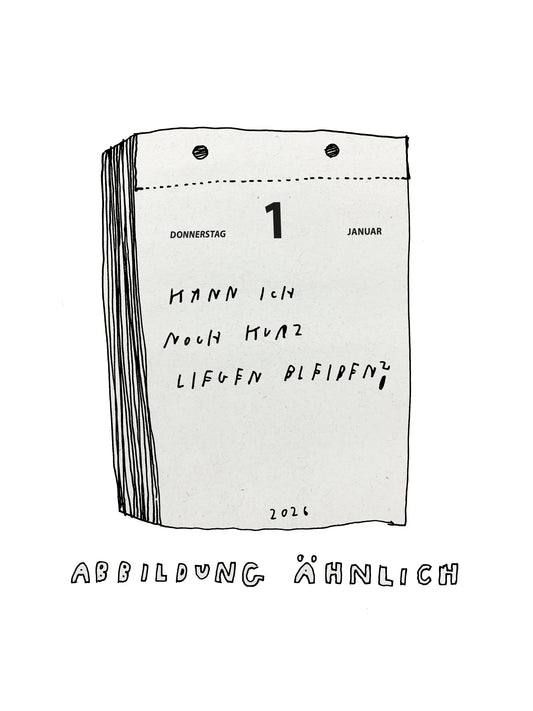 1
DONNERSTAG JANUAR
KANN ICH
NOCH KURZ
LIEGEN BLEIBEN?
2026
ABBILDUNG ÄHNLICH